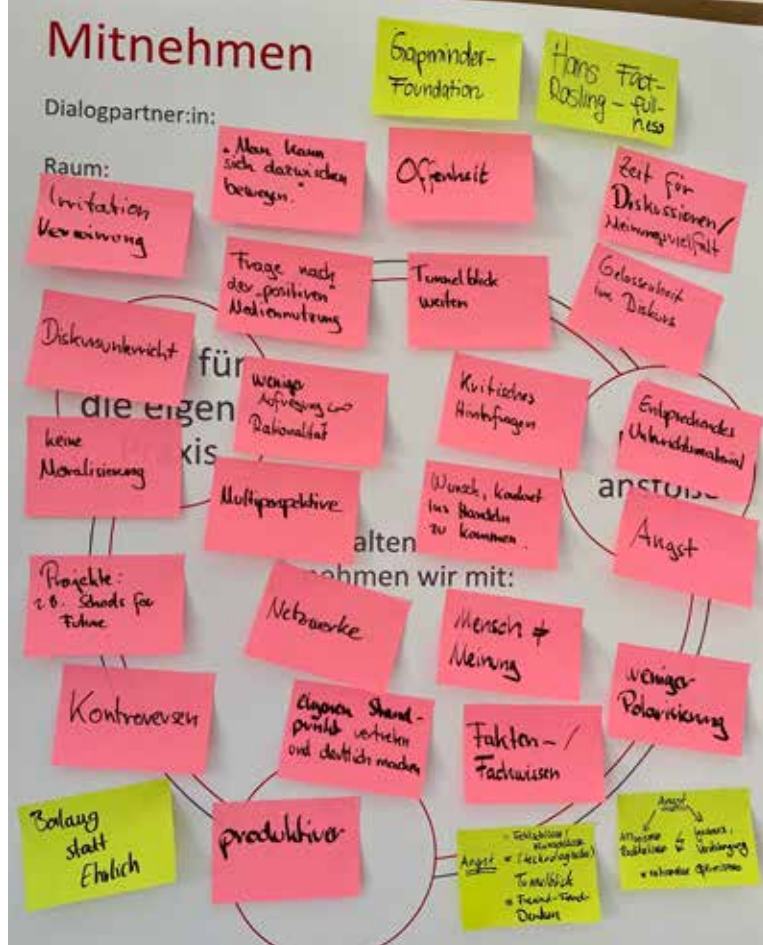 Mitnehmen
Dialogpartner:in:
Raum:
Gapminder-
Foundation
Hans Fact-
Rosling – full-
ness
"Man kann
sich dazwischen
bewegen."
Offenheit
Zeit für
Diskussionen/
Meinungsvielfalt
Irritation
Verwirrung
Frage nach
der "positiven"
Mediennutzung
Tunnelblick
weiten
Gelassenheit
im Diskurs
Diskursunterricht
für
die eigen
xis
weniger
Aufregung
Rationalität
Kritisches
Hinterfragen
Entsprechendes
Unterrichtsmaterial
keine
Moralisierung
Multiperspektive
Wunsch, konkret
ins Handeln
zu kommen.
anstöß
Angst
alten
nehmen wir mit:
Projekte:
z.B. Schools for
Future
Netzwerke
Mensch ≠
Meinung
weniger
Polarisierung
Kontroversen
eigenen Stand-
punkt vertreten
und deutlich machen
Fakten-/
Fachwissen
Balaug
statt
Ehrlich
produktiver
Angst
(technologische)
Tunnelblick
Freund-Feind-
Denken
Angst